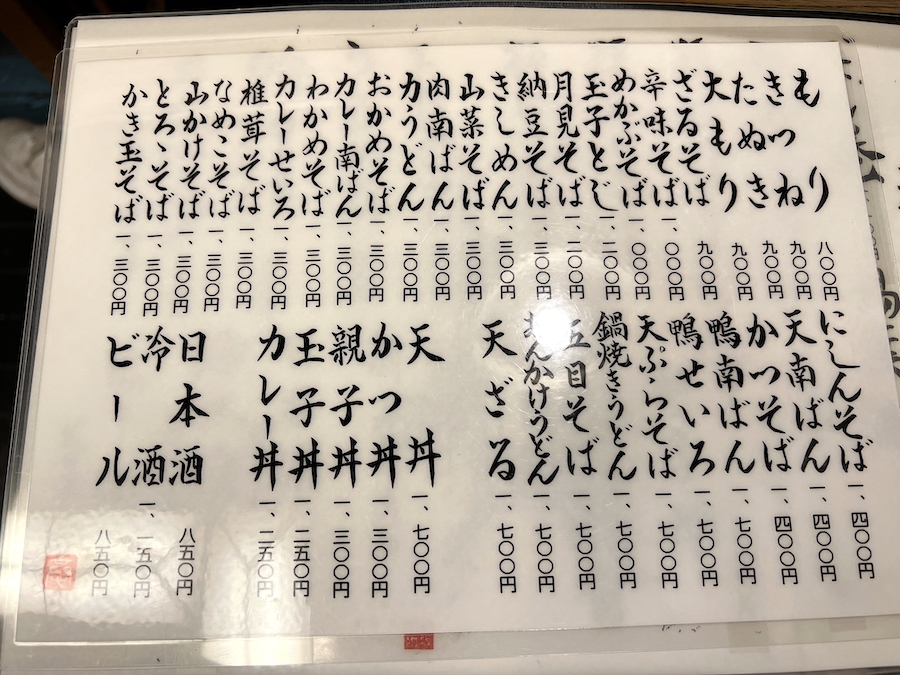 もり 八〇〇円
きつね 九〇〇円
たぬき 九〇〇円
大もり 九〇〇円
ざるそば 九〇〇円
辛味そば 一、〇〇〇円
めかぶそば 一、〇〇〇円
玉子とじ 一、二〇〇円
月見そば 一、二〇〇円
納豆そば 一、三〇〇円
きしめん 一、三〇〇円
山菜そば 一、三〇〇円
肉南ばん 一、三〇〇円
力うどん 一、三〇〇円
おかめそば 一、三〇〇円
カレー南ばん 一、三〇〇円
わかめそば 一、三〇〇円
カレーせいろ 一、三〇〇円
椎茸そば 一、三〇〇円
なめこそば 一、三〇〇円
山かけそば 一、三〇〇円
とろろそば 一、三〇〇円
かき玉そば 一、三〇〇円
にしんそば 一、四〇〇円
天南ばん 一、四〇〇円
かつそば 一、四〇〇円
鴨南ばん 一、七〇〇円
鴨せいろ 一、七〇〇円
天ぷらそば 一、七〇〇円
鍋焼きうどん 一、七〇〇円
五目そば 一、七〇〇円
一、七〇〇円
天ざる 一、七〇〇円
天丼 一、七〇〇円
かつ丼 一、三〇〇円
親子丼 一、三〇〇円
玉子丼 一、二五〇円
カレー丼 一、二五〇円
日本酒 八五〇円
冷酒 一、一五〇円
ビール 八五〇円